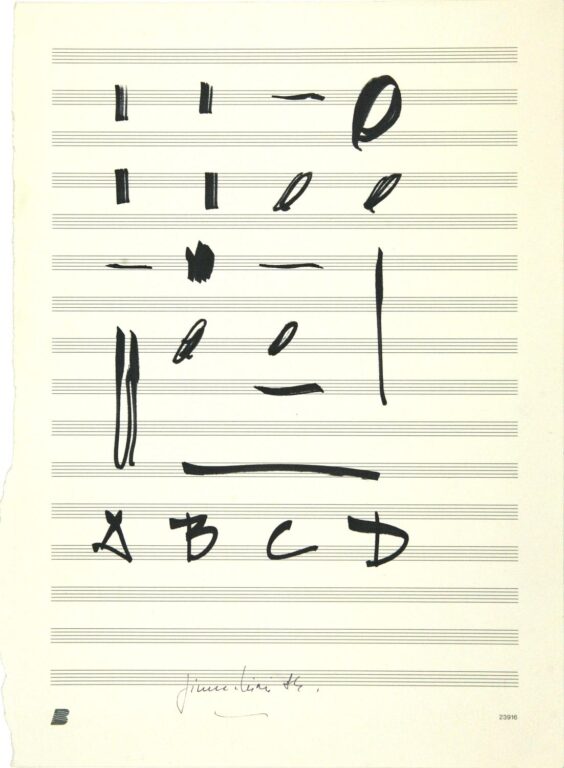 A B C D
23916